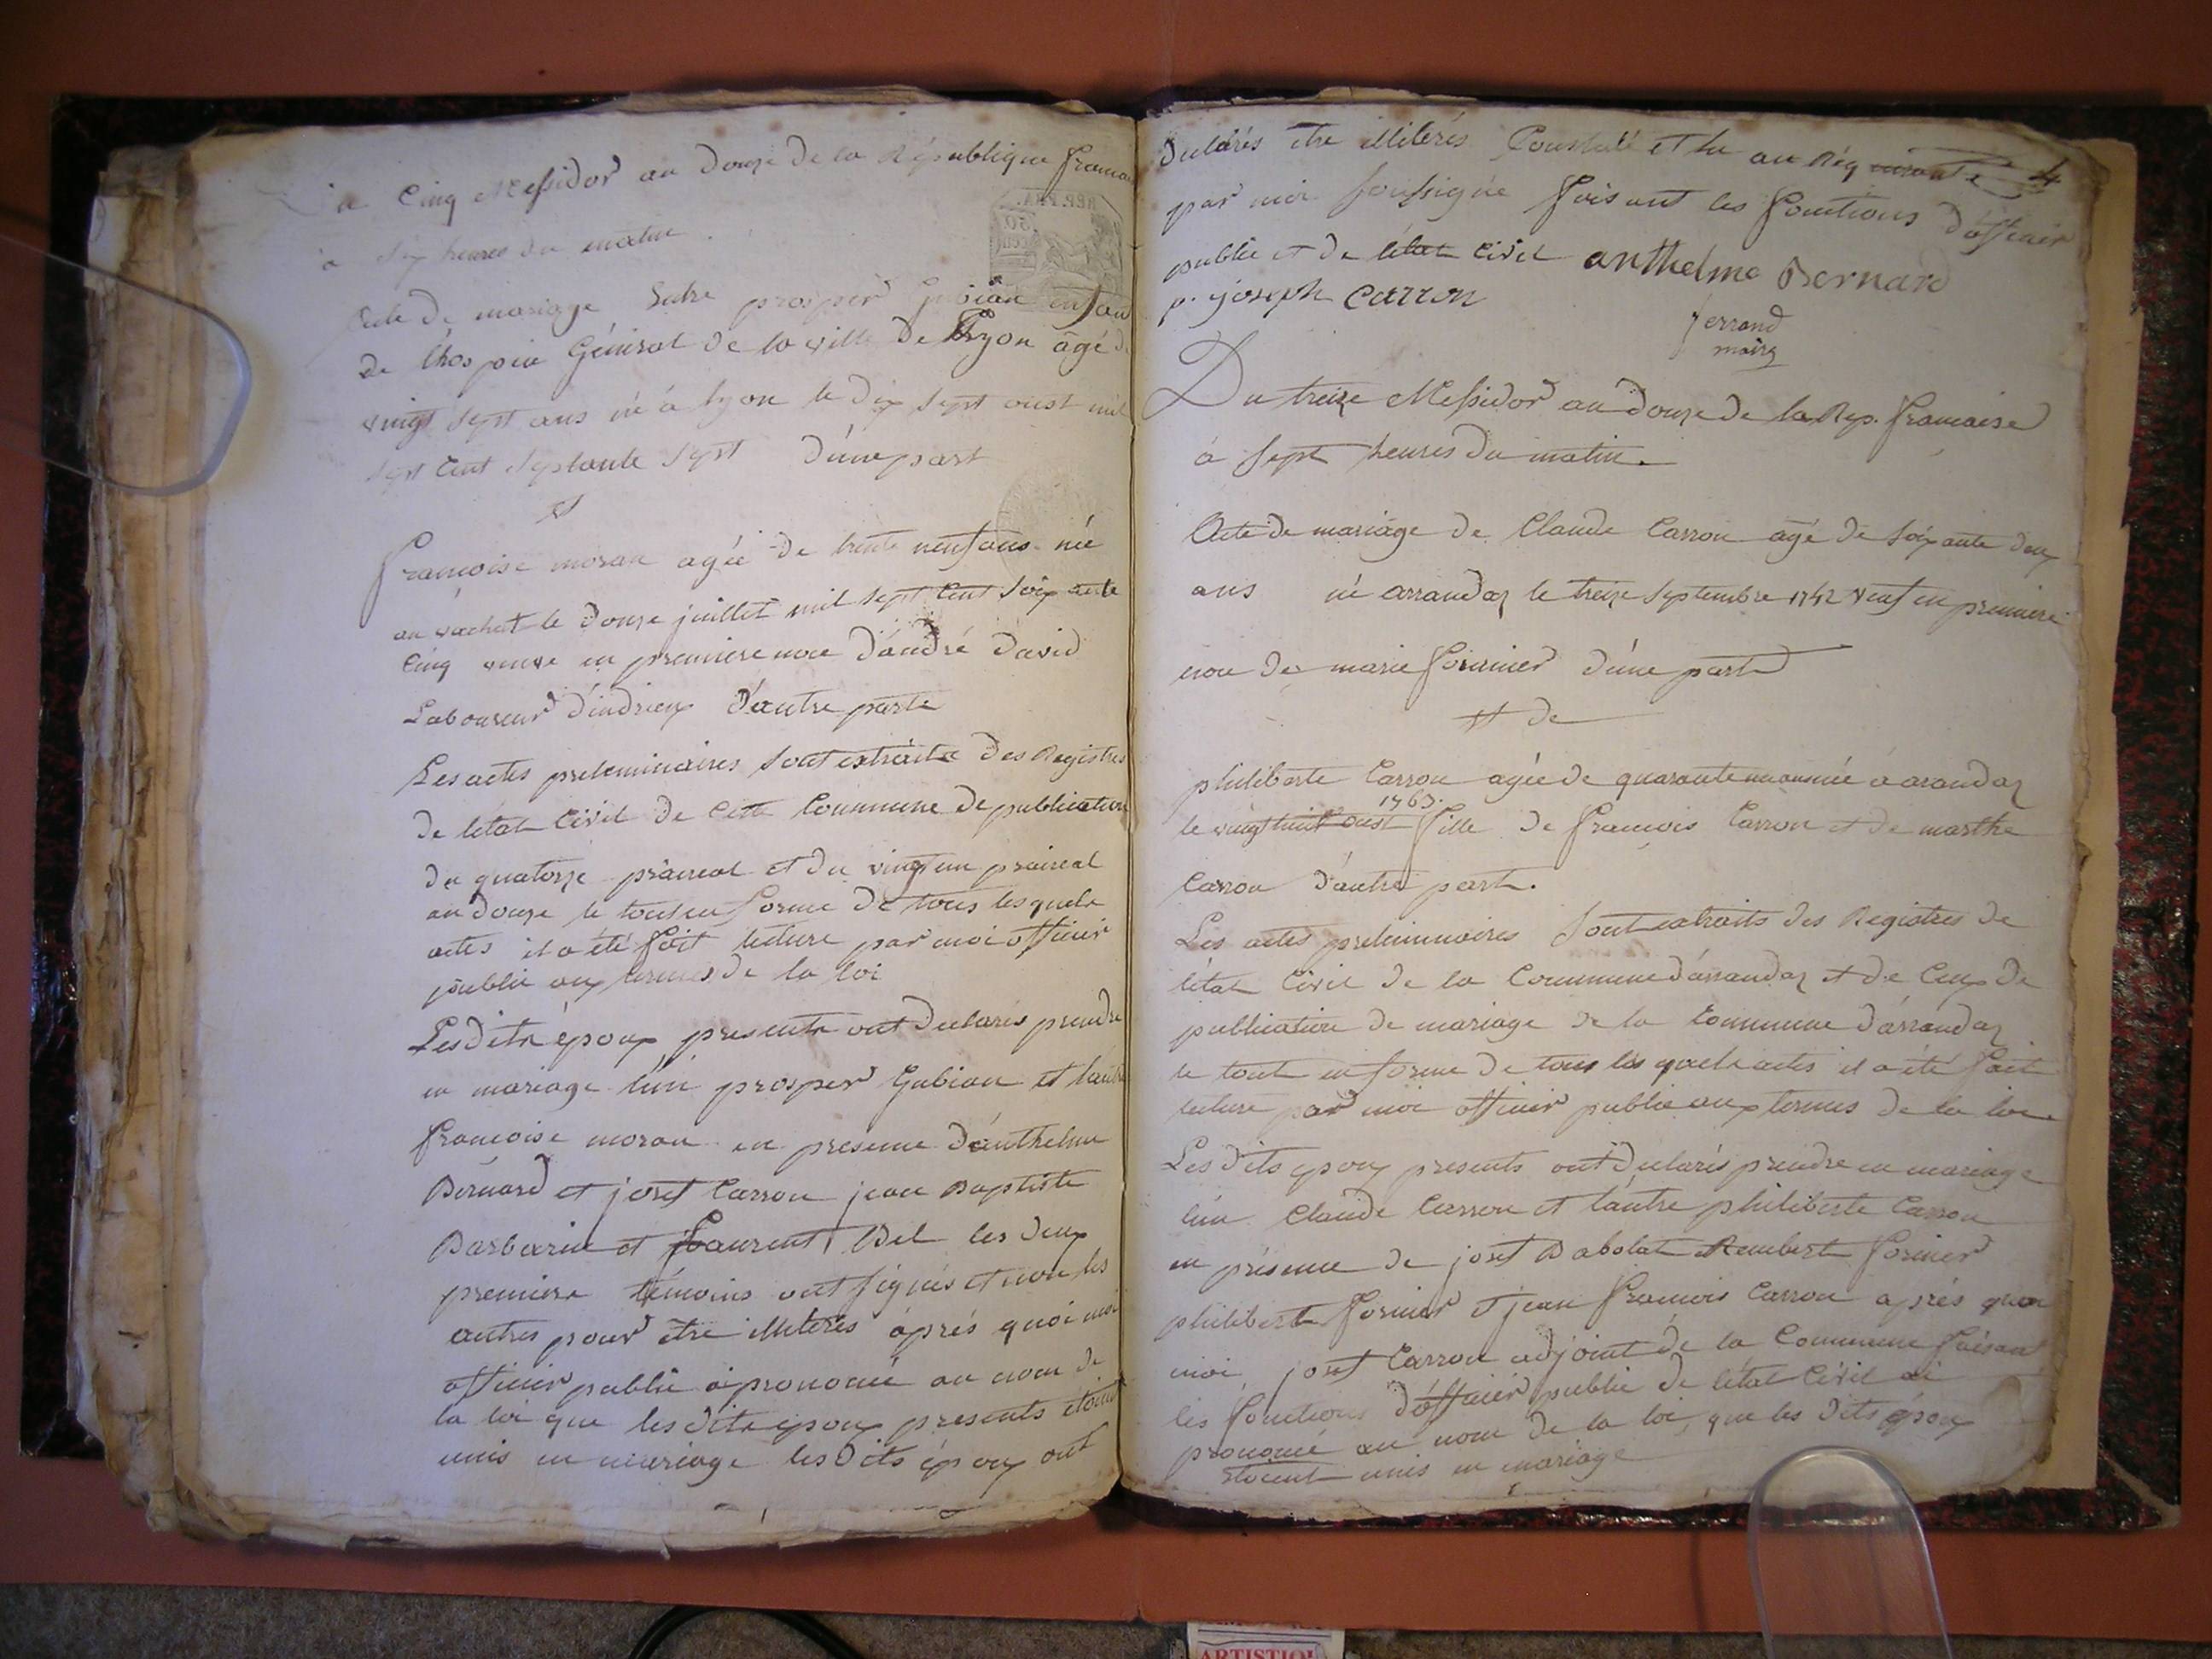 Du Cinq Messidor an douze de la République francaise
à six heures du matin
Acte de mariage Entre prosper Gubian enfant
de lhospice Géneral de la ville de Lyon âgé de
vingt sept ans né à lyon le dix sept oust mil
sept Cent septante sept d'une part
et
francoise moran agée de trente neuf ans née
au vachat le douze juillet mil sept Cent soixante
Cinq veuve en premiere noce d'andré david
Laboureur d'indrieux d'autre parte
Les actes preleminaires sont extraits des Registres
de l'état Civil de Cette Commune de publication
du quatorze praireal et du vingt un praireal
an douze le tout en forme de tous les quels
actes il a été fait lecture par moi officier
public aux termes de la loi
Les dits époux presents ont declarés prendre
en mariage l'un prosper Gubian et l'autre
francoise moran en presence d'anthelme
Bernard et josef Carron jean Baptiste
Barbarin et Laurent Bel les deux
premiers témoins ont signés et non les
autres pour être illiterés après quoi moi
officier public a prononcé au nom de
la loi que les dits époux presents etoient
unis en mariage les dits époux ont
declarés etre illiterés Constaté et lu au Réq 4
par moi soussigné faisant les fonctions d'officier
public et de létat Civil anthelme Bernard
p. joseph Carron
ferrand
maire
Du treize Messidor an douze de la Rep. francaise
à sept heures du matin.
Acte de mariage de Claude Carron agé de soixante deux
ans né arrandaz le treize septembre 1742 veuf en premiere
noce de marie fornier d'une part
et de
philiberte Carron agée de quarante un an née a arandaz
1763.
le vingt huit oust fille de francois Carron et de marthe
Carron d'autre part.
Les actes preleminaires sont extraits des Registres de
l'état Civil de la Commune d'arrandaz et de Ceux de
publication de mariage de la Commune d'arrandaz
le tout en forme de tous les quels actes il a été fait
lecture par moi officier public aux termes de la loi
Les dits epoux presents ont declarés prendre en mariage
l'un Claude Carron et l'autre philiberte Carron
en présence de josef Babolat Rembert fornier
philibert fornier et jean francois Carron après quoi
moi josef Carron adjoint de la Commune faisant
les fonctions d'officier public de l'état Civil ai
prononcé au nom de la loi que les dits époux
etoient unis en mariage